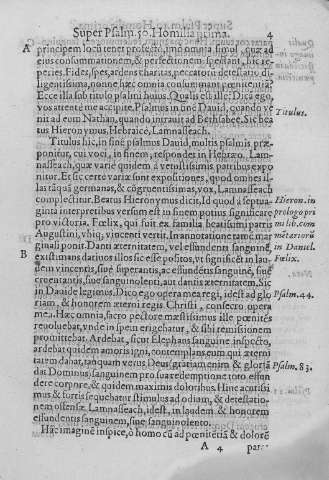 Super Psalm. 50. Homilia prima. 4
A principem loco tenet profecto, imo omnia simul, quæ ad
eius consummationem, & perfectionem spectant, hic re-
peries. Fides, spes, ardens charitas, peccatorū detestatio di-
ligentissima, nonne hæc omnia consummant pœnitentiā?
Ecce illa sub titulo psalmi huius. Qualis est ille? Dico ego,
vos attente me accipite. Psalmus in finē Dauid, quando ve
nit ad eum Nathan, quando intrauit ad Bethsabee. Sic bea
tus Hieronymus, Hebraicè, Lamnasseach.
Titulus.
Titulus hic, in finē psalmus Dauid, multis psalmis præ
ponitur, cui voci, in finem, respondet in Hebræo. Lam-
nasseach, quæ variè quidem à vetustissimis patribus expo
nitur. Et sic certe variæ sunt expositiones, quod omnes il-
las tāquā germanas, & cōgruentissimas, vox, Lamnasseach
complectitur. Beatus Hieronymus dicit, Id quod à septua-
ginta interpretibus versum est in finem potius significare
pro victoria. Fœlix, qui fuit ex familia beatissimi patris
Augustini, vbiq; vincenti vertit. In annotatione tamē mar
ginali ponit. Danti æternitatem, vel effundenti sanguinē,
Hieron. in
prologo pri
mi lib. com
mētariorū
in Daniel.
Fœlix.
B existimans datiuos illos sic esse positos, vt significēt in lau
dem vincentis, siue superantis, ac effundētis sanguinē, siue
cruentantis, siue sanguinolenti, aut dantis æternitatem. Sic
in Dauide legimus. Dico ego opera mea regi, idest ad glo
riam, & honorem æterni regis Christi, consecro opera
mea. Hæc omnia, sacro pectore mæstissimus ille pœnitēs
reuoluebat, vnde in spem erigebatur, & sibi remissionem
promittebat. Ardebat, sicut Elephas sanguine inspecto,
ardebat quidem amoris igni, contemplans eum qui æterni
tatem dabat, tanquam verus Deus: gratiam enim & gloriā
das Dominus, sanguinem pro sua redemptione toto effun
dere corpore, & quidem maximis doloribus. Hinc acutissi
mus & fortis sequebatur stimulus ad odium, & detestatio-
nem offensæ. Lamnasseach, idest, in laudem & honorem
effundentis sanguinem, siue sanguinolento.
Psalm. 44.
Psalm. 83.
Hāc imaginē inspice, o homo cū ad pœnitētiā & dolorē
A 4